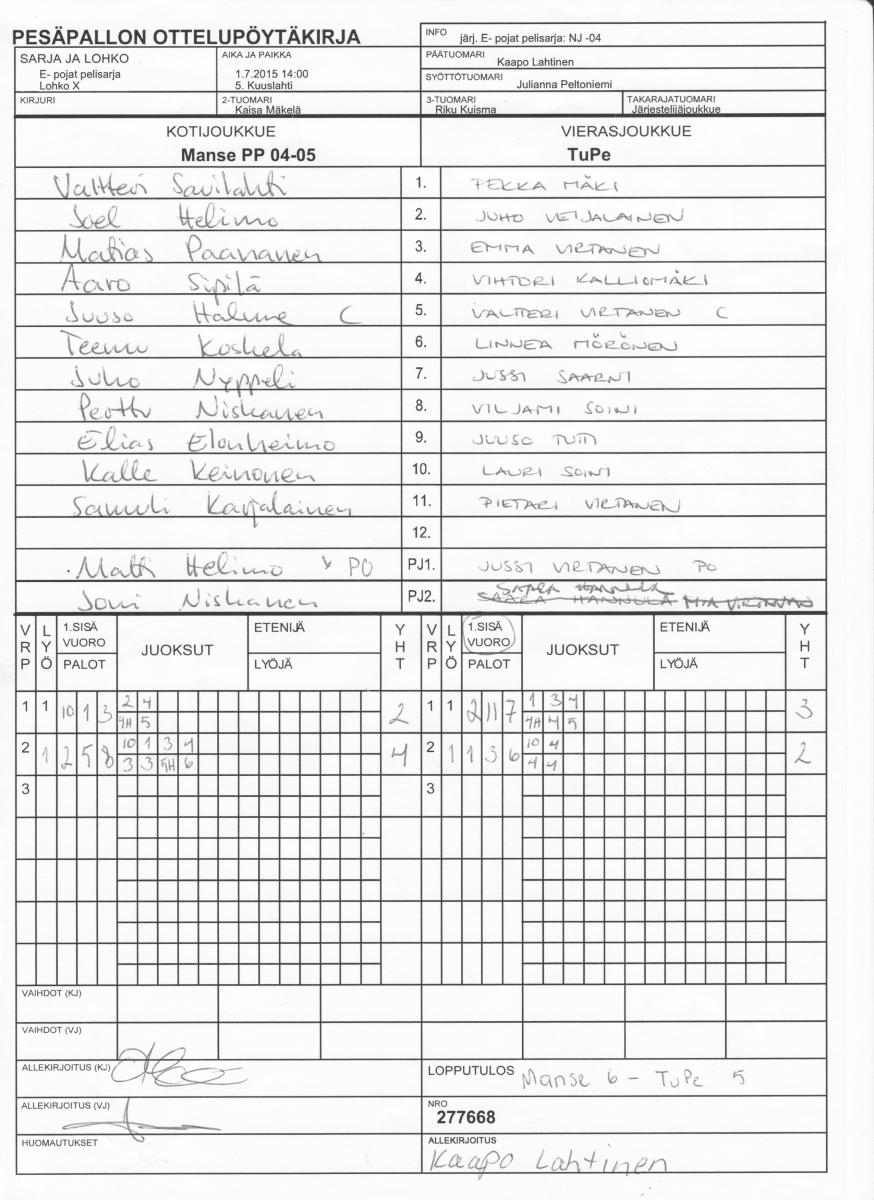 PESÄPALLON OTTELUPÖYTÄKIRJA
INFO järj. E- pojat pelisarja: NJ -04
SARJA JA LOHKO
E- pojat pelisarja
Lohko X
AIKA JA PAIKKA
1.7.2015 14:00
5. Kuuslahti
PÄÄTUOMARI
Kaapo Lahtinen
SYÖTTÖTUOMARI
Julianna Peltoniemi
KIRJURI
2-TUOMARI
Kaisa Mäkelä
3-TUOMARI
Riku Kuisma
TAKARAJATUOMARI
Järjestelijäjoukkue
KOTIJOUKKUE VIERASJOUKKUE
Manse PP 04-05 TuPe
Valtteri Savilahti 1. PEKKA MÄKI
Joel Helimo 2. JUHO VEIJALAINEN
Matias Paananen 3. EMMA VIRTANEN
Aaro Sipilä 4. VIHTORI KALLIOMÄKI
Juuso Halme C 5. VALTTERI VIRTANEN C
Teemu Koskela 6. LINNEA MÖRÖNEN
Juho Nyppeli 7. JUSSI SAARNI
Perttu Niskanen 8. VILJAMI SOINI
Elias Elonheimo 9. JUUSO TUTTI
Kalle Keinonen 10. LAURI SOINI
Samuli Karjalainen 11. PIETARI VIRTANEN
12.
Matti Helimo PO PJ1. JUSSI VIRTANEN PO
Joni Niskanen PJ2. SAARA HANNULA
SAARA HANNULA MIA VIRTANEN
VRP LYÖ 1.SISÄ VUORO PALOT JUOKSUT ETENIJÄ LYÖJÄ YHT VRP LYÖ 1.SISÄ VUORO PALOT JUOKSUT ETENIJÄ LYÖJÄ YHT
1 1 10 1 3 2 4 2 1 1 2 11 7 1 3 4 3
4H 5 4H 4 5
2 1 2 5 8 10 1 3 4 4 2 1 1 3 6 10 4 2
3 3 5H 6 4 4
3 3
VAIHDOT (KJ)
VAIHDOT (VJ)
ALLEKIRJOITUS (KJ)
LOPPUTULOS Manse 6 - TuPe 5
ALLEKIRJOITUS (VJ)
NRO
277668
HUOMAUTUKSET
ALLEKIRJOITUS
Kaapo Lahtinen